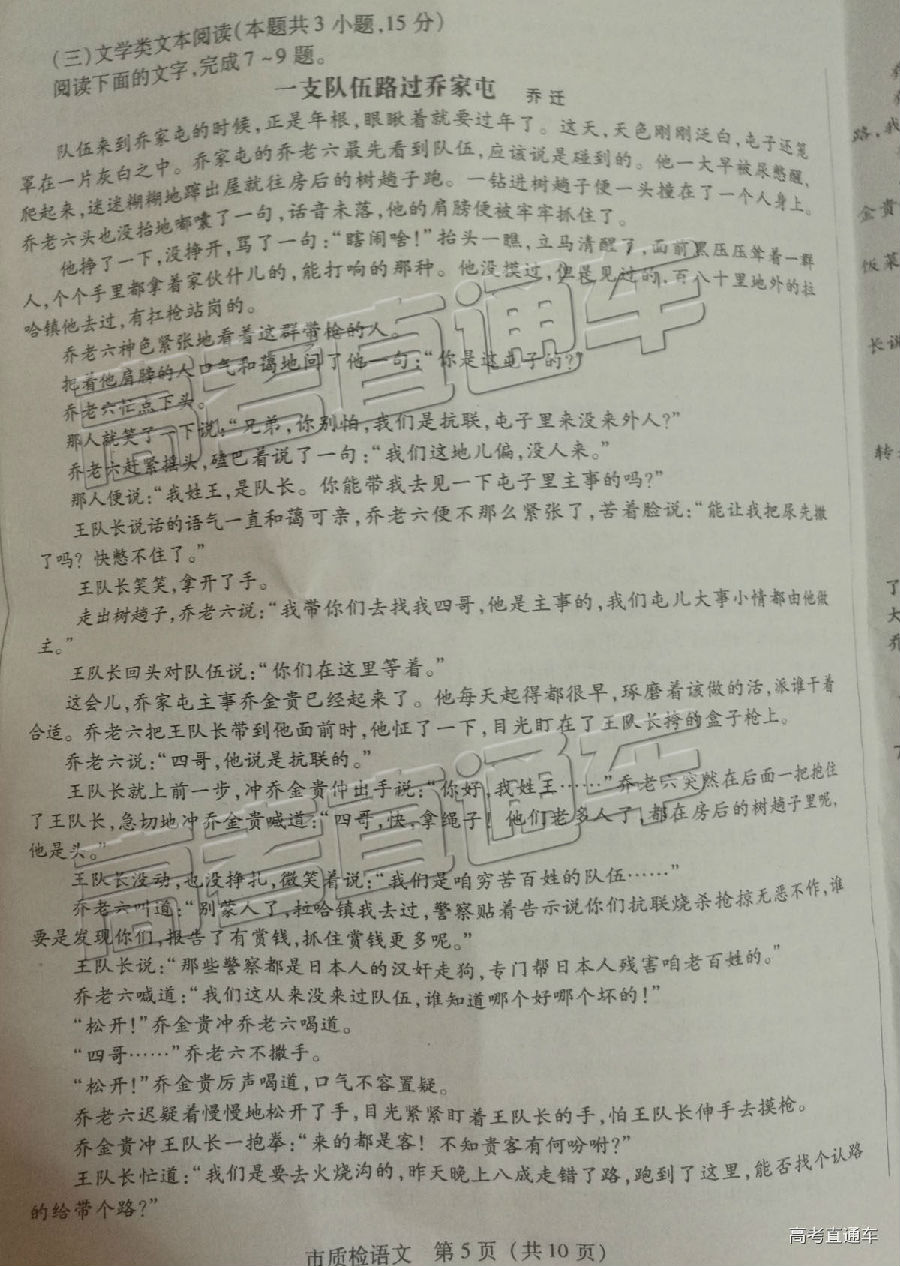 (三)文学类文本阅读(本题共3小题,15分)
阅读下面的文字,完成7~9题。
一支队伍路过乔家屯 乔 迁
队伍来到乔家屯的时候,正是年根,眼瞅着就要过年了。这天,天色刚刚泛白,屯子还笼
罩在一片灰白之中。乔家屯的乔老六最先看到队伍,应该说是碰到的。他一大早被尿憋醒,
爬起来,迷迷糊糊地蹿出屋就往房后的树趟子跑。一钻进树趟子便一头撞在了一个人身上。
乔老六头也没抬地嘟囔了一句,话音未落,他的肩膀便被牢牢抓住了。
他挣了一下,没挣开,骂了一句:“瞎闹啥!”抬头一瞧,立马清醒了,面前黑压压耸着一群
人,个个手里都拿着家伙什儿的,能打响的那种。他没摸过,但是见过的,百八十里地外的拉
哈镇他去过,有扛枪站岗的。
乔老六神色紧张地看着这群带枪的人。
抓着他肩膀的人口气和蔼地问了他一句:“你是这屯子的?”
乔老六忙点下头。
那人就笑了一下说:“兄弟,你别怕,我们是抗联,屯子里来没来外人?”
乔老六赶紧摇头,磕巴着说了一句:“我们这地儿偏,没人来。”
那人便说:“我姓王,是队长。你能带我去见一下屯子里主事的吗?”
王队长说话的语气一直和蔼可亲,乔老六便不那么紧张了,苦着脸说:“能让我把尿先撒
了吗?快憋不住了。”
王队长笑笑,拿开了手。
走出树趟子,乔老六说:“我带你们去找我四哥,他是主事的,我们屯儿大事小情都由他做
主。”
王队长回头对队伍说:“你们在这里等着。”
这会儿,乔家屯主事乔金贵已经起来了。他每天起得都很早,琢磨着该做的活,派谁干着
合适。乔老六把王队长带到他面前时,他怔了一下,目光盯在了王队长挎的盒子枪上。
乔老六说:“四哥,他说是抗联的。”
王队长就上前一步,冲乔金贵伸出手说:“你好,我姓王……”乔老六突然在后面一把抱住
了王队长,急切地冲乔金贵喊道:“四哥,快,拿绳子!他们老多人了,都在房后的树趟子里呢,
他是头。”
王队长没动,也没挣扎,微笑着说:“我们是咱穷苦百姓的队伍……”
乔老六叫道:“别蒙人了,拉哈镇我去过,警察贴着告示说你们抗联烧杀抢掠无恶不作,谁
要是发现你们,报告了有赏钱,抓住赏钱更多呢。”
王队长说:“那些警察都是日本人的汉奸走狗,专门帮日本人残害咱老百姓的。”
乔老六喊道:“我们这从来没来过队伍,谁知道哪个好哪个坏的!”
“松开!”乔金贵冲乔老六喝道。
“四哥……”乔老六不撒手。
“松开!”乔金贵厉声喝道,口气不容置疑。
乔老六迟疑着慢慢地松开了手,目光紧紧盯着王队长的手,怕王队长伸手去摸枪。
乔金贵冲王队长一抱拳:“来的都是客!不知贵客有何吩咐?”
王队长忙道:“我们是要去火烧沟的,昨天晚上八成走错了路,跑到了这里,能否找个认路
的给带个路?”
市质检语文 第5页(共10页)
高考直通车
高考直通车
高考直通车
路,我
金贵
饭菜
长说
转
了
大
乔